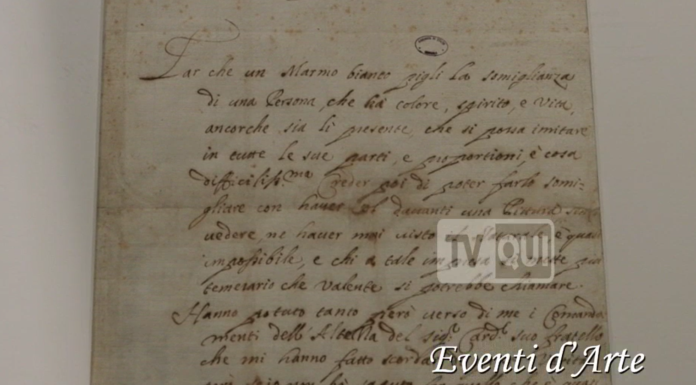 Far che un Marmo bianco pigli la somiglianza
di una Persona, che hà colore, spirito, e vita,
ancorche sia li presente, che si possa imitare
in tutte le sue parti, e proportioni, è cosa
difficiliss.ma Creder poi di poter farlo somi-
gliare con haver sol davanti una Pittura senza
vedere, ne haver mai visto il Naturale è quasi
impossibile, e chi a tale impresa si mette più
temerario che valente si potrebbe chiamare.
Hanno potuto tanto però verso di me i Comanda-
menti dell'Altezza del sig.r Card.l suo fratello
che mi hanno fatto scordar
TV QUI
Eventi d'Arte